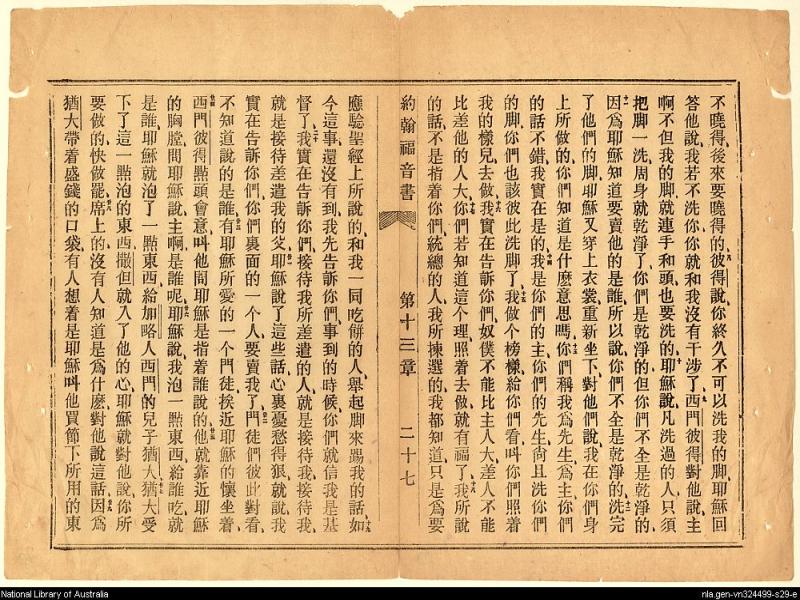 不曉得後來要曉得的彼得說你終久不可以洗我的脚耶穌回
答他說我若不洗你你就和我沒有干涉了西門彼得對他說主
啊不但我的脚就連手和頭也要洗的耶穌說凡洗過的人只須
把脚一洗周身就乾淨了你們是乾淨的但你們不全是乾淨的
因爲耶穌知道要賣他的是誰所以說你們不全是乾淨的洗完
了他們的脚耶穌又穿上衣裳重新坐下對他們說我在你們身
上所做的你們知道是什麽意思嗎你們稱我爲先生爲主你們
的話不錯我實在是的我是你們的主你們的先生尙且洗你們
的脚你們也該彼此洗脚了我做個榜樣給你們看叫你們照着
我的樣兒去做我實在告訴你們奴僕不能比主人大差人不能
比差他的人大你們若知道這個理照着去做就有福了我所說
的話不是指着你們統總的人我所揀選的我都知道只是爲要
約翰福音書 第十三章 二十七
應驗聖經上所說的和我一同吃餅的人舉起脚來踢我的話如
今這事還沒有到我先告訴你們事到的時候你們就信我是基
督了我實在告訴你們接待我所差遣的人就是接待我接待我
就是接待差遣我的父耶穌說了這些話心裏憂愁得狠就說我
實在告訴你們你們裏面的一個人要賣我了門徒們彼此對看
不知道說的是誰有耶穌所愛的一個門徒挨近耶穌的懷坐着
西門彼得點頭會意叫他問耶穌是指着誰說的他就靠近耶穌
的胸膛問耶穌說主啊是誰呢耶穌說我泡一點東西給誰吃就
是誰耶穌就泡了一點東西給加略人西門的兒子猶大猶大受
下了這一點泡的東西撒但就入了他的心耶穌就對他說你所
要做的快做罷席上的沒有人知道是爲什麽對他說這話因爲
猶大帶着盛錢的口袋有人想着是耶穌叫他買節下所用的東
National Library of Australia
nla.gen-vn324499-s29-e